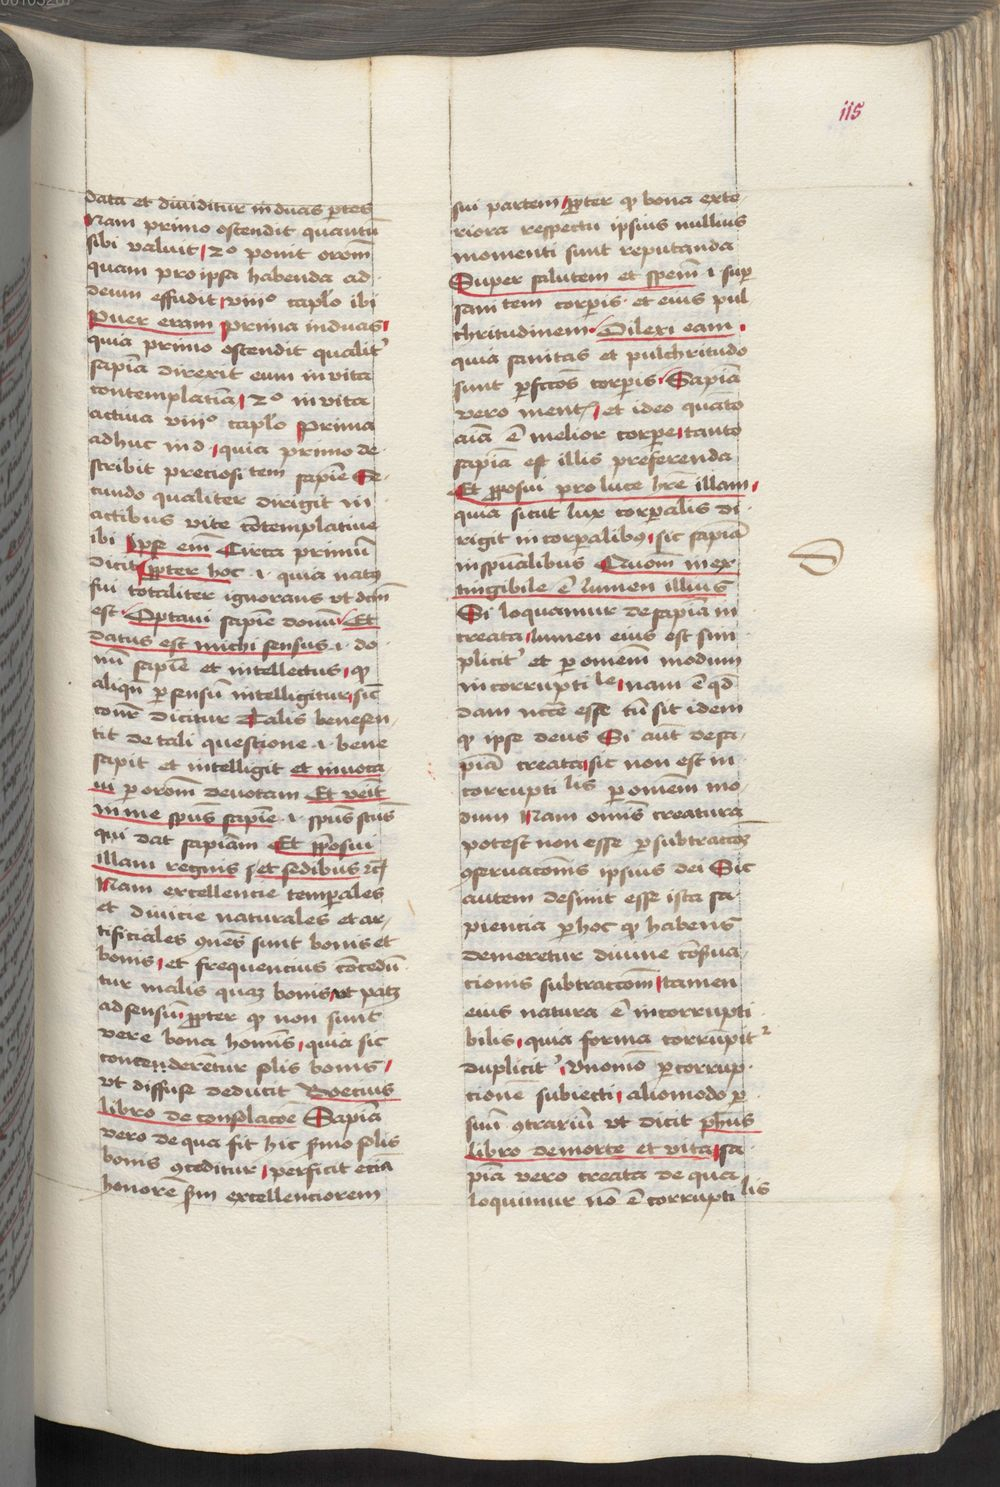 115
data et diuiditur in duas p̄tes
Nam primo ostendit quantū
sibi valuit / 2º ponit oroēm
quam pro ipsa habenda ad
deum effudit / viiiº caplo ibi
Puer eram / prima in duas /
quia primo ostendit qualit̄
sapīa direxit eum in vita
contemplatīa / 2º in vita
actiua viiiº caplo Prima
adhuc in d / quia primo de-
scribit preciositem sapīe Se-
cundo qualiter dirigit in
actibus vite cōtemplatiue
ibi Ipse em̄ Circa primū
dicit / ꝓpter hoc ·i· quia natꝰ
fui totaliter ignorans vt dc̄m
est / Optaui sapīe donū / Et
datus est michi sensus ·i· do-
nū sapīe et intellectus / qꝫ
aliqn̄ ꝑ sensū intelligitur / sic̄
dicitur Talis benesen-
tit de tali questione ·i· bene
sapit et intelligit et inuoca-
ui ꝑ oroēm deuotam Et venit
in me spūs sapīe ·i· spūs sctūs
qui dat sapīam Et ꝓposui
illam regnis / et sedibus
Nam excellencie temꝑales
et diuicie naturales et ar-
tificiales ꝯnes sunt bonis et
bonis / et frequencius cōcedū-
tur malis quaꝫ bonis / vt patꝫ
ad sensū / ꝓpter qꝫ non sunt
vere bona homīs / quia sic
concenderētur solis bonis /
vt diffuse deducit Boecius
libro de consolacōe Sapīa
vero de qua fit hic sermo solis
bonis ꝯceditur / perficit eciā
honorē sm̄ excellenciorem
sui partem / ꝓpter qꝫ bona exte-
riora respectu ipsius nullius
momenti sunt reputanda
Super salutem et spem̄ ·i· suꝑ
sanitem corꝑis · et eius pul-
chritudinem / Dilexi eam /
quia sanitas et pulchritudo
sunt ꝑfcc̄oēs corꝑis / Sapīa
vero mentꝭ / et ideo quāto
aīa ē melior corpore / tanto
sapīa est illis preferenda
Et ꝓposui pro luce hr̄e illam /
quia sicut lux corꝑalis di-
rigit in corꝑalibꝰ / sic sapīa
in spūalibus Quoniā inex-
tingibile ē lumen illius
Si loquamur de sapīa in-
creata / lumen eius est sim-
plicit̄ et ꝑ omnem modum
incorruptile / nam ē qd-
dam ncc̄e esse cū sit idem
qꝫ ipse deus Si aut̄ de sa-
pīa creata / sic non est in-
corruptilis ꝑ omnem mo-
dum Nam omnis creatura
potest non esse ꝑ subtraccōꝫ
ꝯseruacōnis ipsius dei Sic
autem desinit esse ista sa-
piencia ꝑ hoc qꝫ habens
demeretur diuine cōserua-
cionis subtraccōm / tamen
eius natura ē incorrupti-
bilis / quia forma corrūpit²
duplicit̄ / Vnomō ꝑ corrup-
cionē subiecti / aliomodo ꝑ
suū ꝯtrariū vt dicit ph̄us
libro de morte et vita / sa-
pīa vero creata de qua
loquimur nō ē corruptilis